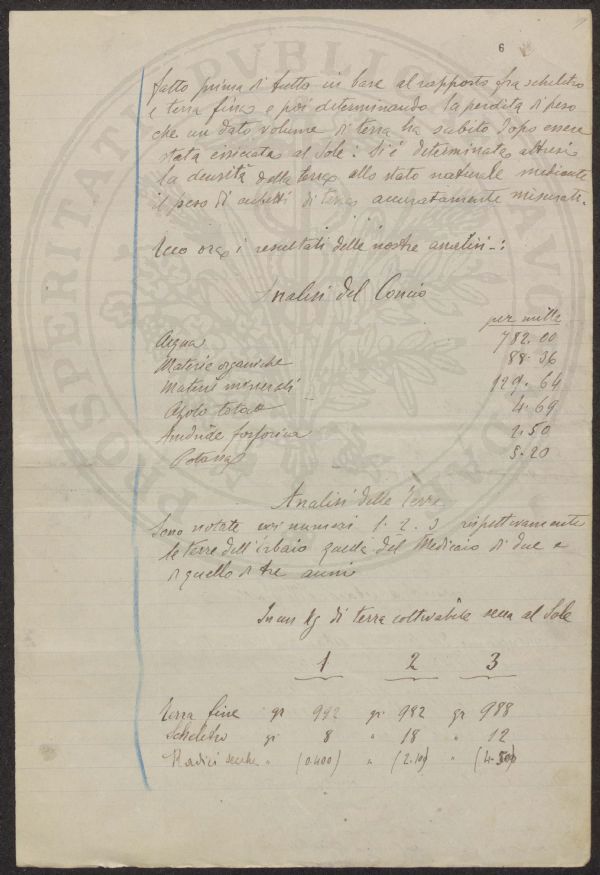 6
fatto prima di tutto in base al rapporto fra scheletro
e terra fina e poi determinando la perdita di peso
che un dato volume di terra ha subito dopo essere
stata essiccata al Sole: Si è determinata altresì
la densità della terra allo stato naturale mediante
il peso di cubetti di terra accuratamente misurati.
Ecco ora i resultati delle nostre analisi:
Analisi del Concio
per mille
Acqua 782.00
Materie organiche 88.36
Materie minerali 129.64
Azoto totale 4.69
Anidride fosforica 2.50
Potassa 5.20
Analisi delle Terre
Sono notate coi numeri 1. 2. 3 rispettivamente
le terre dell'Erbaio quella del Medicaio di due e
di quello di tre anni
In un Kg di terra coltivabile secca al Sole
1 2 3
Terra fine gr 992 gr. 982 gr 988
Scheletro gr 8 " 18 " 12
Radici secche " (0.400) " (2.10) " (4.50)
PROSPERITATI PVBLICAE